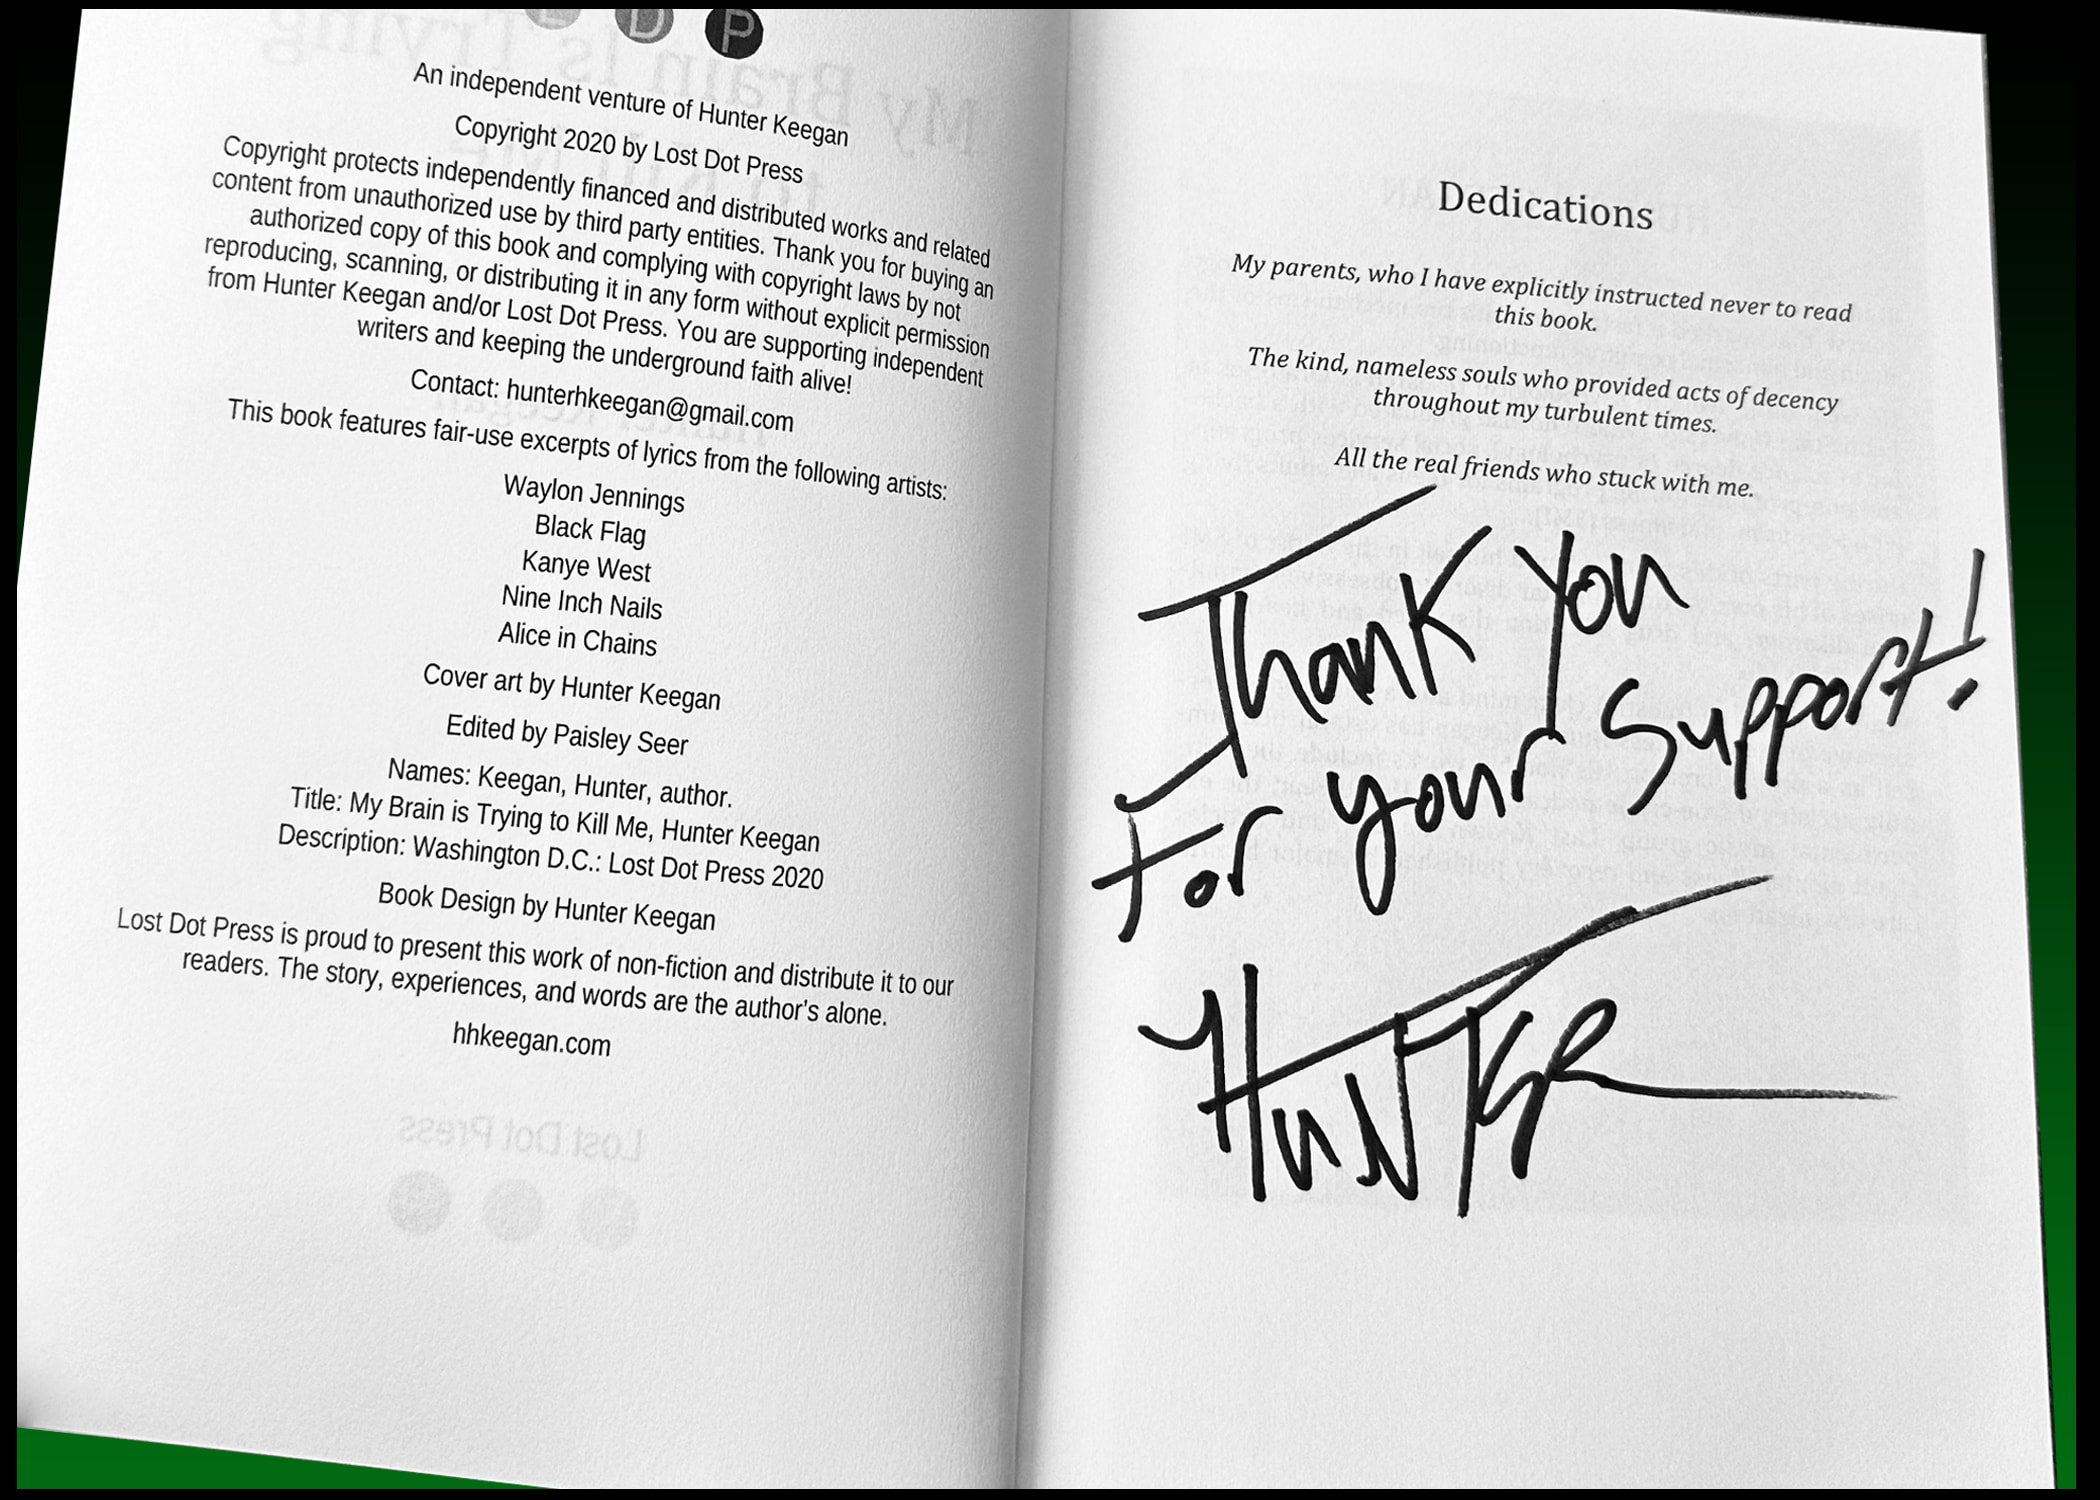 L D P
An independent venture of Hunter Keegan
Copyright 2020 by Lost Dot Press
Copyright protects independently financed and distributed works and related
content from unauthorized use by third party entities. Thank you for buying an
authorized copy of this book and complying with copyright laws by not
reproducing, scanning, or distributing it in any form without explicit permission
from Hunter Keegan and/or Lost Dot Press. You are supporting independent
writers and keeping the underground faith alive!
Contact: hunterhkeegan@gmail.com
This book features fair-use excerpts of lyrics from the following artists:
Waylon Jennings
Black Flag
Kanye West
Nine Inch Nails
Alice in Chains
Cover art by Hunter Keegan
Edited by Paisley Seer
Names: Keegan, Hunter, author.
Title: My Brain is Trying to Kill Me, Hunter Keegan
Description: Washington D.C.: Lost Dot Press 2020
Book Design by Hunter Keegan
Lost Dot Press is proud to present this work of non-fiction and distribute it to our
readers. The story, experiences, and words are the author's alone.
hhkeegan.com
Lost Dot Press
Dedications
My parents, who I have explicitly instructed never to read
this book.
The kind, nameless souls who provided acts of decency
throughout my turbulent times.
All the real friends who stuck with me.
Thank You
For your Support!
Hunter